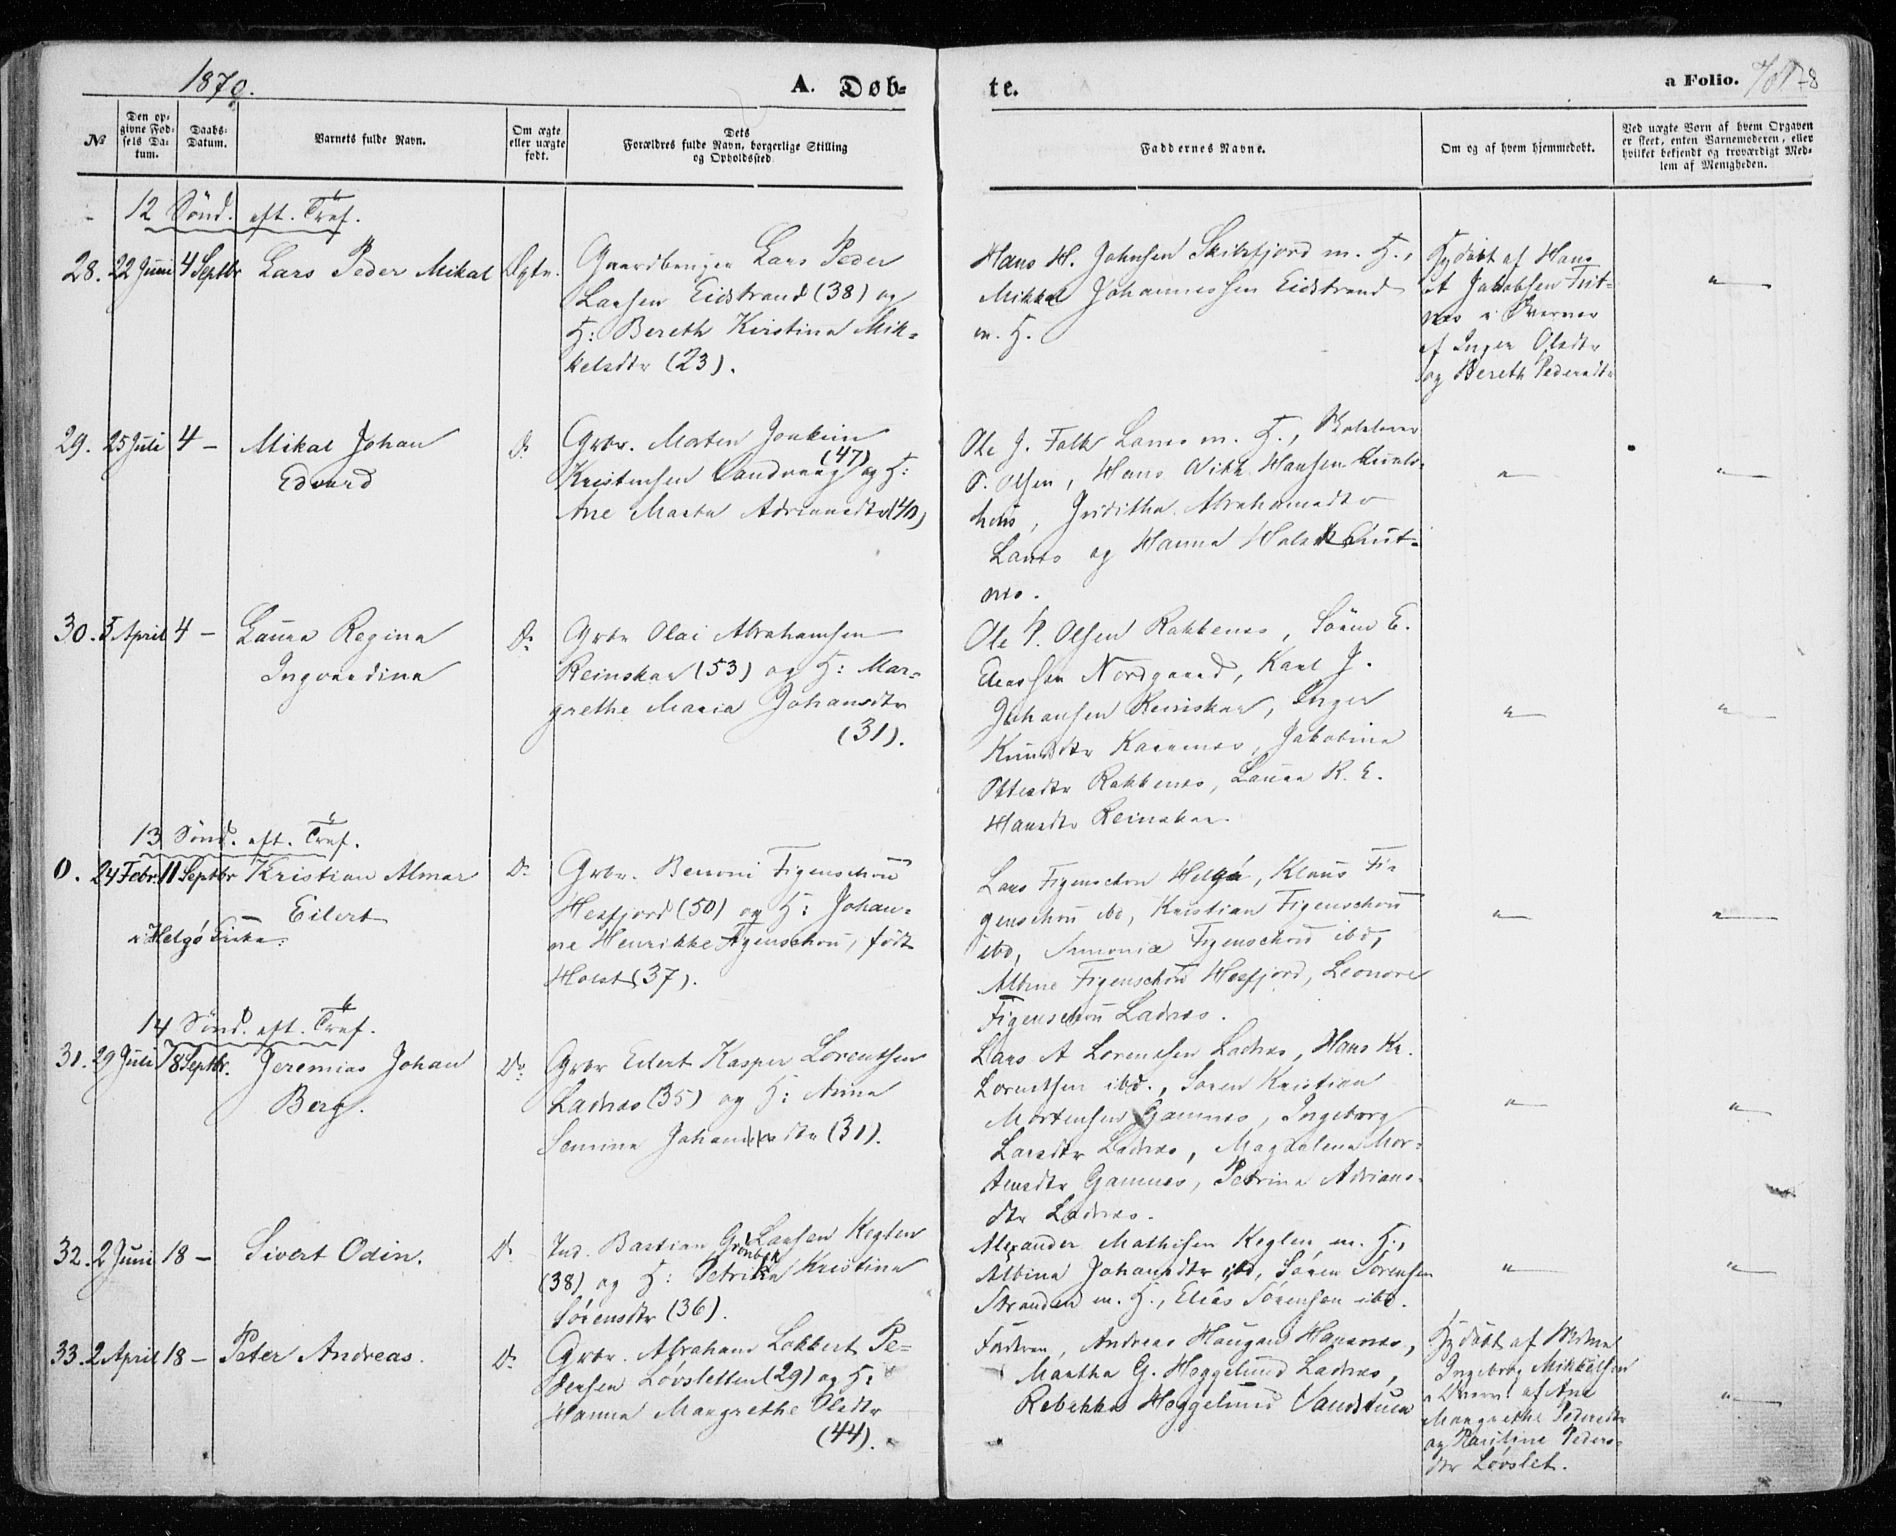 1870.
A. Døb-
te.
a Folio. 78
No
Den op-
givne Fød-
sels Da-
tum.
Daabs-
Datum.
Barnets fulde Navn.
Om ægte
eller uægte
født.
Dets
Forældres fulde Navn, borgerlige Stilling
og Opholdssted
Faddernes Navne.
Om og af hvem hjemmedøbt.
Ved uægte Børn af hvem Opgaven
er skeet, enten Barnemoderen, eller
hvilket bekjendt og troværdigt Med-
lem af Menigheden.
12 Sønd. eft. Tref.
28. 22 Juni 4 Septbr Lars Peder Mikal Ægte.
Gaardbruger Lars Peder
Larsen Eidstrand (38) og
H: Bereth Kirstina Mik-
kelsdtr (23).
Hans H. Johnsen Skibsfjord m. H.,
Mikkal Johannessen Eidstrand
m. H.
Hjdøbt af Hans
Jakobsen
af Inger Olsdtr
og Bereth Pedersdtr
"
29. 25 Juli 4 - Mikal Johan
Edvard
Do
Grbr. Morten Joakim
Kristensen Vandvaag (47) og H:
Ane Marta Adriansdtr (40)
Ole J. Falk Lanes m. H.,
P. Olsen, Hans Hansen
Abrahamsdtr
Lanes og Hanna
nes.
"
"
30. 5 April 4 - Laura Regina
Ingvardina
Do
Grbr Olai Abrahamsen
Reinskar (53) og H: Mar-
grethe Maria Johansdtr
(31).
Ole P. Olsen Rakkenes, Søren E.
Eliassen Nordgaard, Karl J.
Johansen Reinskar, Inger
Knudsdtr, Jakobina
Rakkenes, Laura R. E.
Hansdtr Reinskar.
"
"
13 Sønd. eft. Tref.
0. 24 Febr. 11 Septbr Kristian Almar
Eilert
i Helgø Kirke.
Do
Grbr. Benoni Figenschou
Hesfjord (50) og H: Johan-
ne Henrikke Figenschou, født
Holst (37).
Lars Figenschou Helgø, Klaus Fi-
genschou ibd, Kristian Figenschou
ibd, Figenschou ibd,
Albine Figenschou Hesfjord, Leonore
Figenschou Ladnes.
"
"
14 Sønd. eft. Tref.
31. 29 Juli 18 Septbr. Jeremias Johan
Berg.
Do
Grbr Eilert Kasper Lorentsen
Ladnes (35) og H: Anna
Semine dtr (31).
Lars A Lorentsen Ladnes, Hans Kr.
Lorentsen ibd., Søren Kristian
Mortensen Gamnes, Ingeborg
Larsdtr Ladnes, Magdalena Mor-
tensdtr Gamnes, Petrina Adrians-
dtr Ladnes.
"
"
32. 2 Juni 18 - Sivert Odin.
Do
Ind. Bastian Grønbek Larsen Keglen
(38) og H: Petrika Kristina
Sørensdtr (36).
Alexander Mathisen Keglen m. H.,
Albina Johansdtr ibd, Søren Sørensen
Stranden m. H., Elias Sørensen ibd.
"
"
33. 2 April 18 - Peter Andreas.
Do
Grbr. Abraham Lokkert Pe-
dersen Løvsletten (29) og H:
Hanna Margrethe Olsdtr
(44).
Faderen, Andreas Haugan Hansnes,
Martha G. Heggelund Ladnes,
Rebekka Heggelund Vandstuen
Hjdøbt af
Ingeborg Mikkelsen
af Ane
Margrethe Pedersdtr
og Pauline Peders-
dtr Løvslet.
"